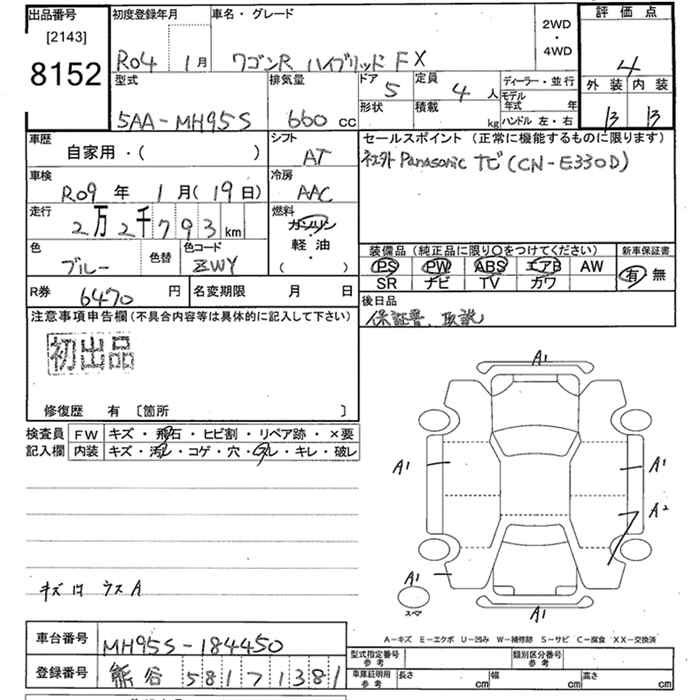 出品番号
[2143]
8152
初度登録年月
R04 1月
車名・グレード
ワゴンR ハイブリッド FX
2WD
・
4WD
評価点
4
外装 内装
B B
型式
5AA-MH95S
排気量
660 cc
ドア
5
定員
4 人
形状
積載
kg
ディーラー・並行
モデル年式 年
ハンドル 左・右
車歴
自家用・( )
シフト
AT
車検
R09 年 1月(19日)
冷房
AAC
走行
2万2千793km
燃料
ガソリン
軽油
( ・ )
色
ブルー
色替
色コード
ZWY
R券
6470 円
名変期限 月 日
セールスポイント(正常に機能するものに限ります)
社外 Panasonic ナビ(CN-E330D)
装備品(純正品に限り○をつけてください)
PS PW ABS エアB AW
SR ナビ TV カワ
新車保証書
有 無
後日品
保証書、取説
注意事項申告欄(不具合内容等は具体的に記入して下さい)
初出品
修復歴 有 〔箇所 〕
検査員
記入欄
FW キズ・飛石・ヒビ割・リペア跡・×要
内装 キズ・汚レ・コゲ・穴・スレ・キレ・破レ
キズ ウスA
A1
A1
A1
A2
A1
A1
スペア
A-キズ E-エクボ U-凹み W-補修跡 S-サビ C-腐食 XX-交換済
車台番号
MH95S-184450
登録番号
熊谷 581 71381
型式指定番号
参考
類別区分番号
参考
車庫証明用
参考
長さ cm
幅 cm
高さ cm